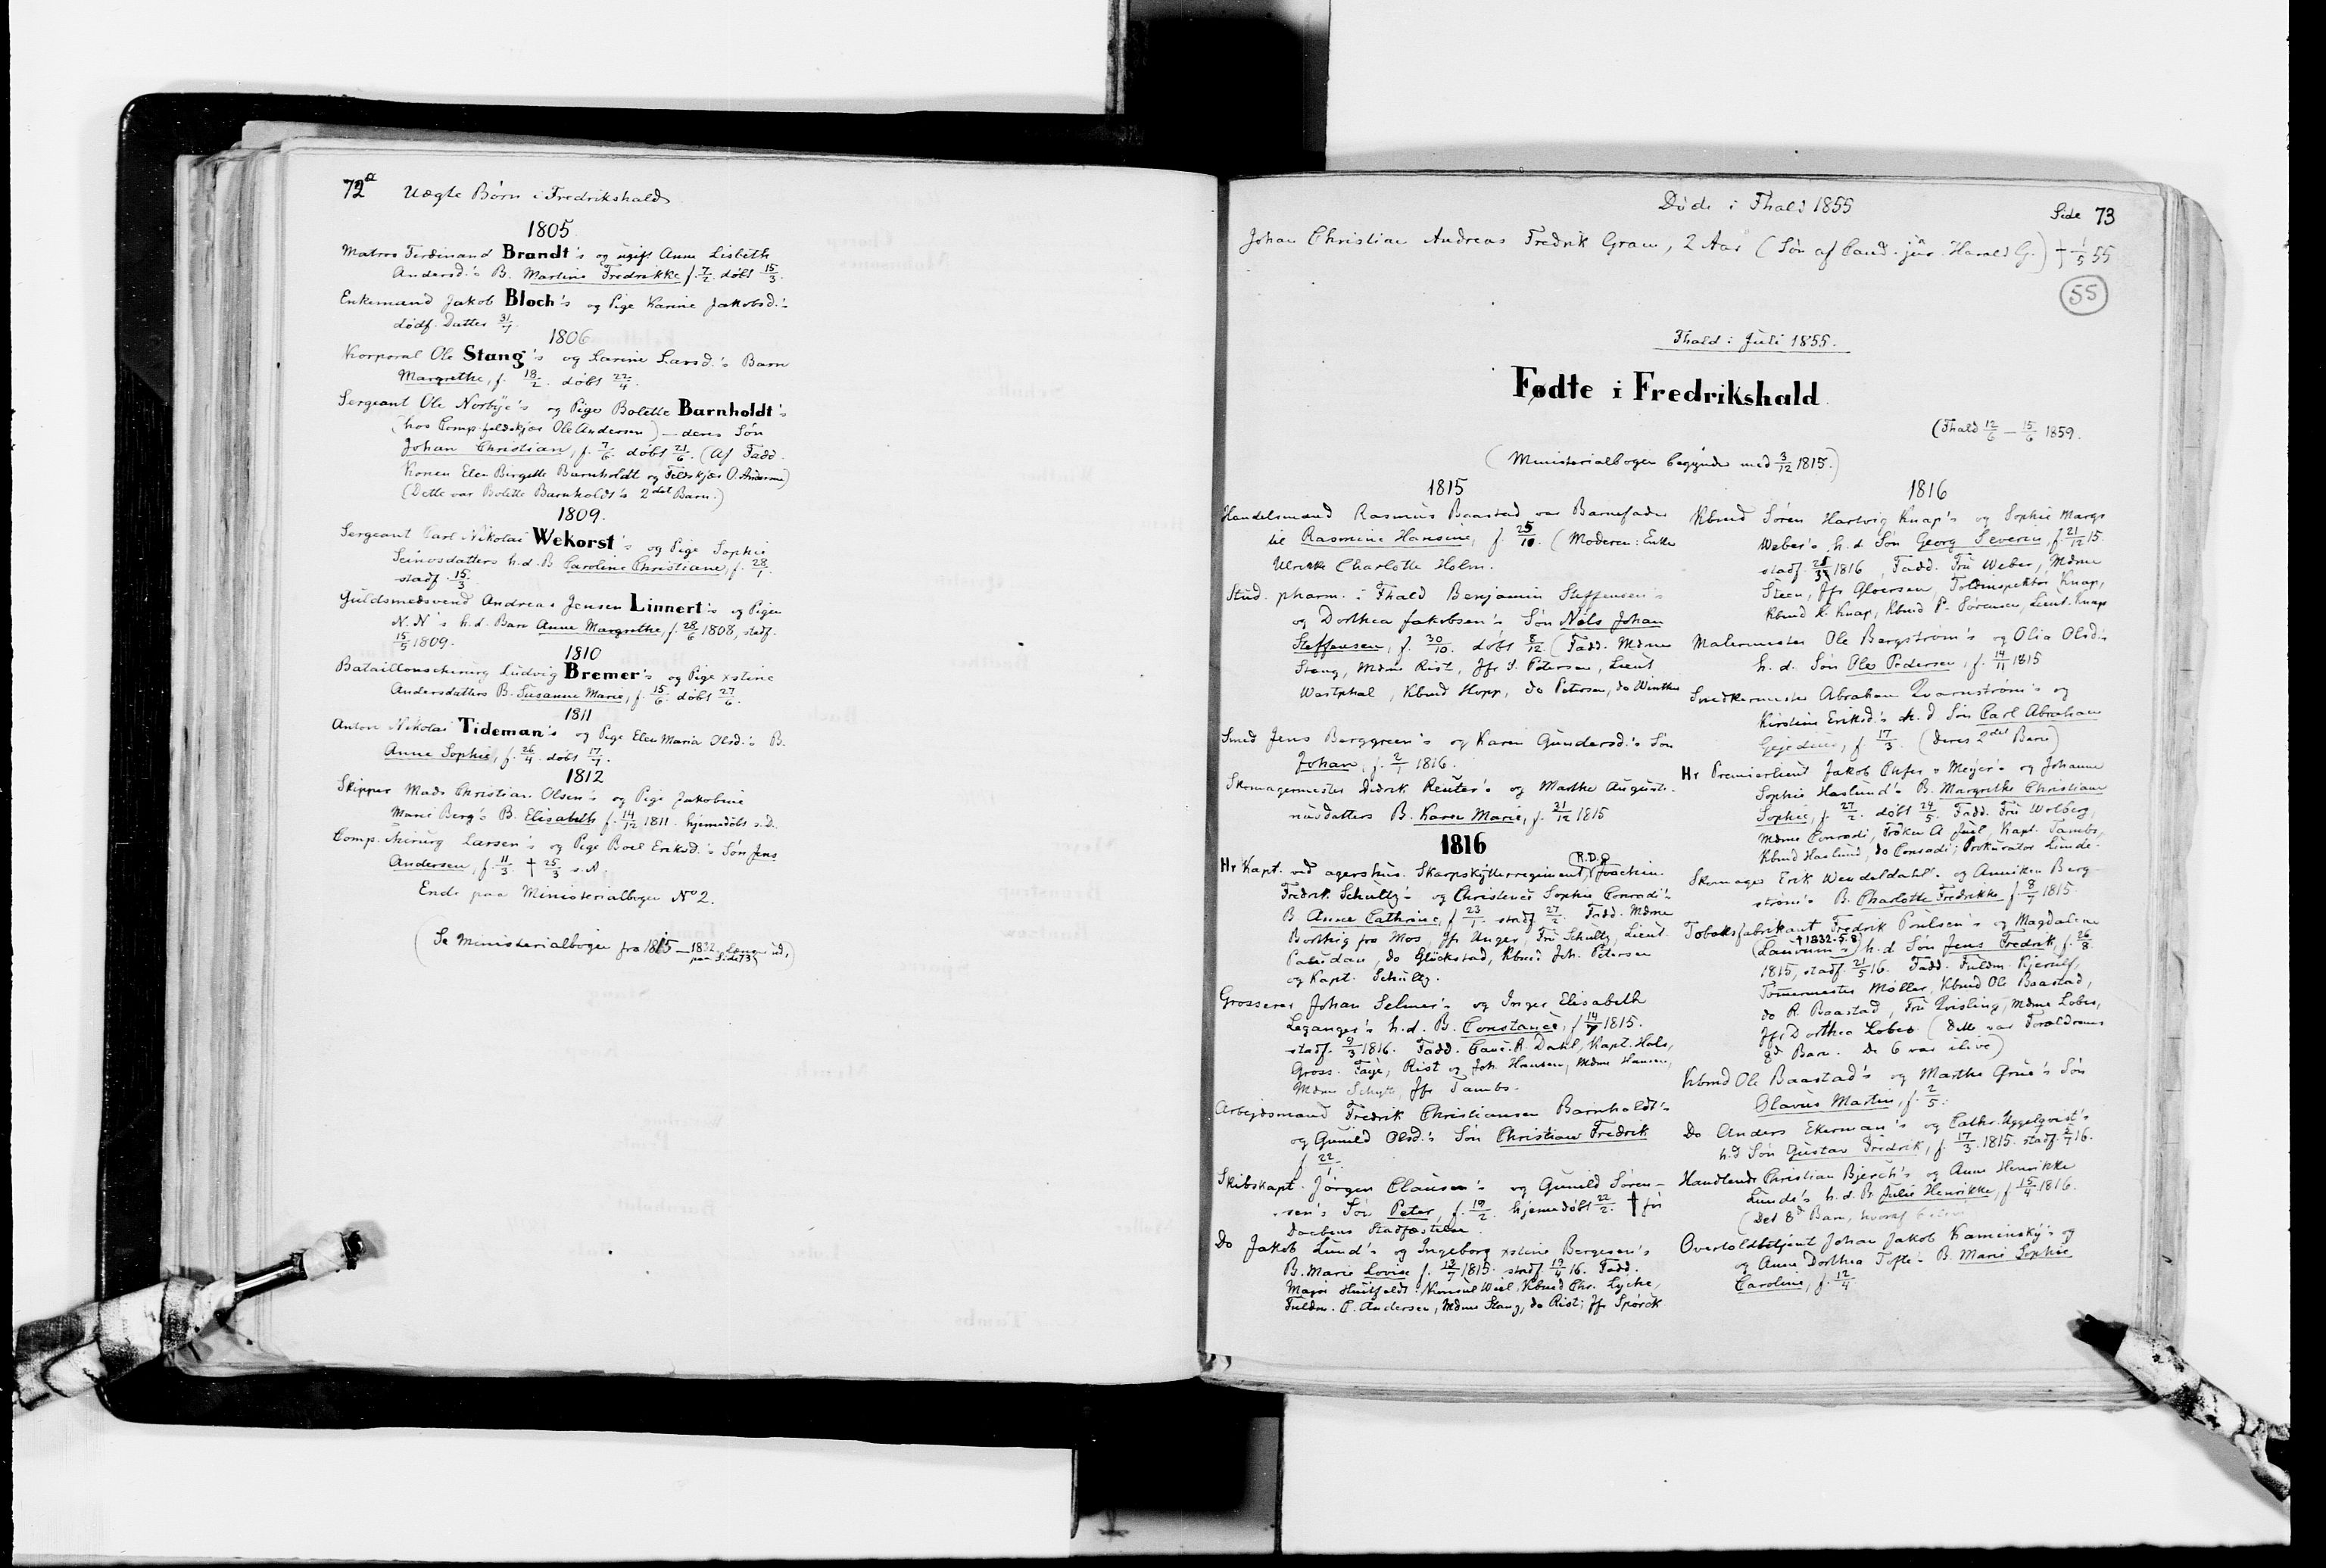 72a Uægte Børn i Fredrikshald
1805
Matros Ferdinand Brandt's og ugift Anne Lisbeth
Andersd.'s B. Martine Fredrikke f. 7/2. døbt 15/3.
Enkemand Jakob Bloch's og Pige Karine Jakobsd.'s
dødf. Datter 31/7.
1806
Korporal Ole Stang's og Karine Larsd.'s Barn
Margrethe, f. 18/2. døbt 22/4.
Sergeant Ole Norbye's og Pige Bolette Barnholdt's
(hos Comp. feldskjær Ole Andersen) — deres Søn
Johan Christian, f. 7/6. døbt 21/6. (Af Fadd.
Konen Elen Birgitte Barnholdt og Feldskjær O. Andersen)
(Dette var Bolette Barnholdt's 2det Barn.)
1809.
Sergeant Carl Nikolai Wekorst's og Pige Sophie
h.d. B. Caroline Christiane, f. 28/1.
stadf. 15/3.
Guldsmedsvend Andreas Jensen Linnert's og Pigen
N.N.'s h.d. Barn Anne Margrethe, f. 28/6 1808, stadf.
15/5 1809.
1810
Bataillonschirurg Ludvig Bremer's og Pige xstine
Andersdatters B. Susanne Marie, f. 15/6. døbt 27/6.
1811
Anton Nikolai Tideman's og Pige Elen Maria Olsd.'s B.
Anne Sophie, f. 26/4. døbt 17/7.
1812
Skipper Mads Christian Olsen's og Pige Jakobine
Marie Berg's B. Elisabeth f. 14/12 1811. hjemmedøbt s.D.
Comp. chirurg Larsen's og Pige Boel Eriksd.'s Søn Jens
Andersen, f. 11/3. † 25/3 s.A.
Ende paa Ministerialbogen No 2.
(Se Ministerialbogen fra 1815—1832 længer ud,
paa Side 73)
Døde i Fhald 1855 Side 73
Johan Christian Andreas Fredrik Gram, 2 Aar (Søn af Cand. jur. Harald G.) † 1/5 55
55
Fhald: Juli 1855.
Fødte i Fredrikshald
(Fhald 12/6 — 15/6 1859.
(Ministerialbogen begynder med 3/12 1815.)
1815
Handelsmand Rasmus Baastad var Barnefader
til Rasmine Hansine, f. 25/10. (Moderen: Enke
Ulrikke Charlotte Holm.
Stud. pharm. i Fhald Benjamin Steffensen's
og Dorthea Jakobsen's Søn Nils Johan
Steffensen, f. 30/10. døbt 8/12. (Fadd. Mdme
Stang, Mdme Rist, Jfr S. Petersen, Lieut
Wastphal, Kbmd Hopp, do Petersen, do Winther
Smed Jens Berggreen's og Karen Gundersd.'s Søn
Johan, f. 2/1 1816.
Skomagermester Didrik Reuter's og Marthe Augusti-
nusdatters B. Karen Marie, f. 21/12 1815
1816
(R.D.O
Hr Kapt. ved agershus. Skarpskytterregiment, Joachim
Fredrik Schultz's og Christence Sophie Conradi's
B. Anne Cathrine, f 23/1. stadf. 27/2. Fadd. Mdme
Borthig fra Mos, Jfr Unger, Fru Schultz, Lieut
Paludan, do Glückstad, Kbmd Joh. Petersen
og Kapt. Schultz.
Grosserer Johan Selmer's og Inger Elisabeth
Leganger's h.d. B. Constance, f 14/7 1815.
stadf. 9/3 1816. Fadd. Dahl, Kapt. Hals,
Gross. Faye, Rist og Joh. Hansen, Mdme Hansen,
Mdme Schytt, Jfr Tambs.
Arbejdsmand Fredrik Christiansen Barnholdt's
og Gunild Olsd.'s Søn Christian Fredrik
f. 22/1.
Skibskapt. Jørgen Clausen's og Gunild Søren-
sen's Søn Peter, f. 19/2. hjemmedøbt 22/2. † før
Daabens Stadfæstelse.
Do Jakob Lund's og Ingeborg xstine Bergesen's
B. Marie Lovise f. 13/7 1815. stadf. 19/4 16. Fadd.
Major Huitfeldt, Konsul Wiel, Kbmd Chr. Lyche,
Fuldm. C. Andersen, Mdme Stang, do Rist; Jfr Spørck
1816
Kbmd Søren Hartvig Knap's og Sophie Margr
Weber's h.d. Søn Georg Severin, f. 21/12 15.
stadf. 25/3 1816, Fadd. Fru Weber, Mdme
Steen, Jfr Gloersen, Toldinspektør Knap,
Kbmd K. Knap, Kbmd P. Sørensen, Lieut. Knap
Malermester Ole Bergstrøm's og Olia Olsd.'s
h.d. Søn Ole Pedersen, f. 14/11 1815
Snedkermester Abraham Qvarnstrøm's og
Kirstine Eriksd.'s h.d Søn Carl Abraham
f. 17/3. (deres 2det Barn)
Hr Premierlieut Jakob Meyer's og Johanne
Sophie Haslund's B. Margrethe Christiane
Sophie, f. 27/2. døbt 24/5. Fadd. Fru Wolberg,
Mdme Conradi, Frøken A Juel, Kapt. Tambs,
Kbmd Haslund, do Conradi; Prokurator Lunde.
Skomager Erik Wendeldahl's og Anniken Berg-
strøm's B. Charlotte Fredrikke f. 8/7 1815
Tobaksfabrikant Fredrik Poulsen's og Magdalene
(Laurum's) † 1832-5/8) h.d Søn Jens Fredrik, f. 26/8
1815, stadf. 21/5 16. Fadd. Fuldm. Kjerulf,
Tømmermester Møller, Kbmd Ole Baastad,
do R. Baastad, Fru Qvisling, Mdme Lobes,
Jfr Dorthea Lobes (dette var Forældrenes
8d Barn. De 6 var ilive)
Kbmd Ole Baastad's og Marthe Grue's Søn
Olavus Martin, f. 2/5.
Do Anders Ekerman's og Cathr. Uggelqvist's
h.d Søn Gustav Fredrik, f. 17/3. 1815. stadf. 2/7 16.
Handlende Christian Bjerch's og Anne Henrikke
Lunde's h.d. B. Julie Henrikke, f 15/4 1816.
(Det 8d Barn, hvoraf 6
Overtoldbetjent Johan Jakob Kaminsky's og
og Anne Dorthea Tofte's B. Marie Sophie
Caroline, f. 12/4